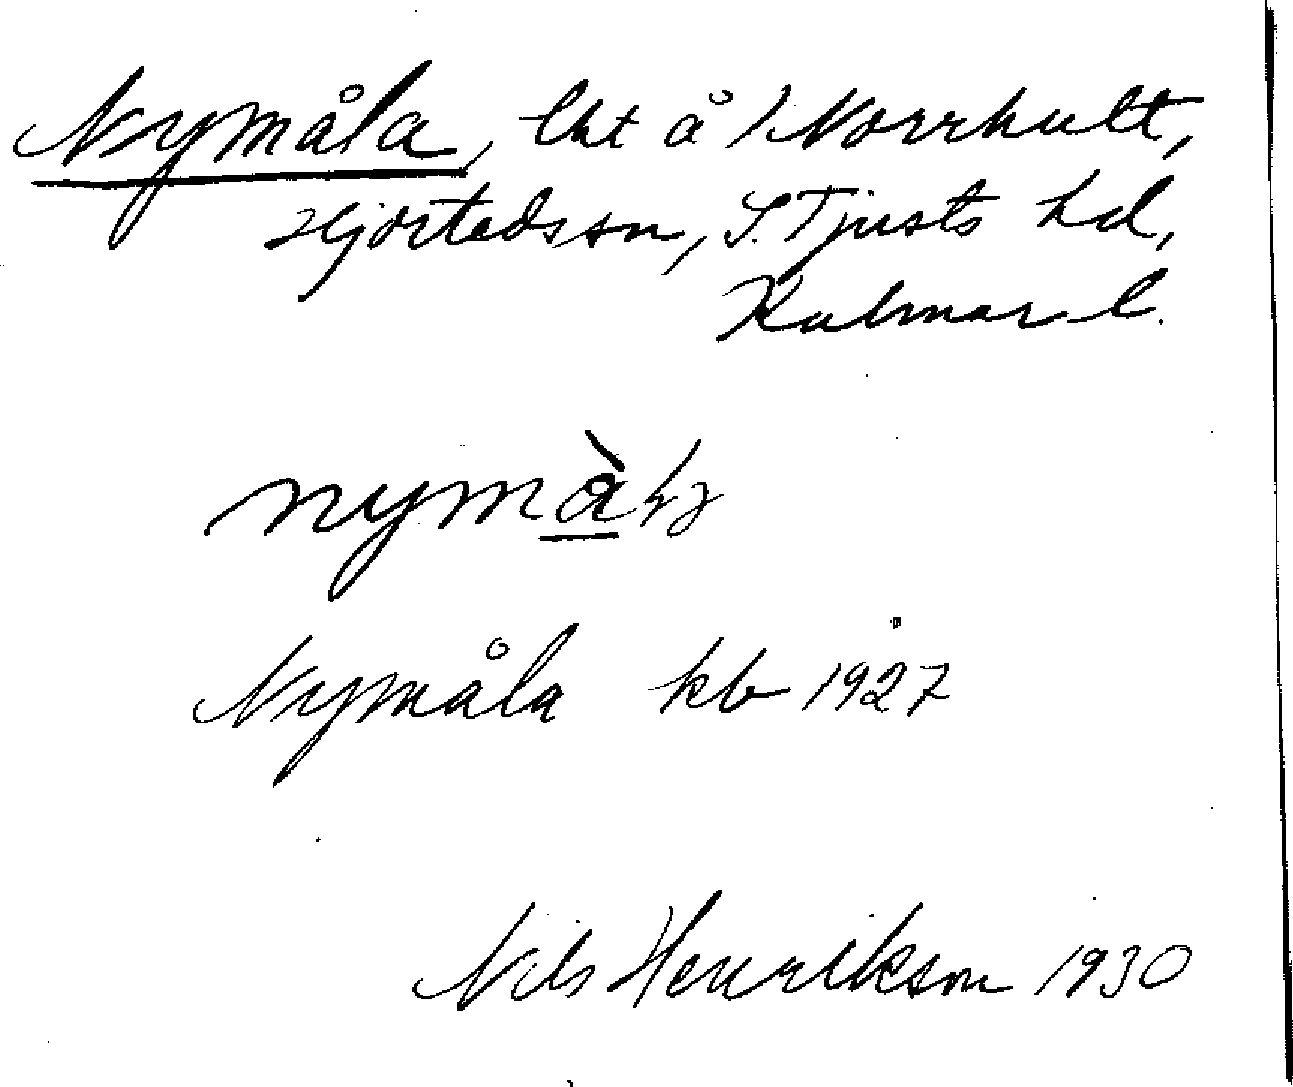 Nymåla, lht å Norrhult,
Hjortedssn, S. Tjusts hd,
Kalmar l.
nymàlɑ
Nymåla kb 1927
Nils Henrikson 1930